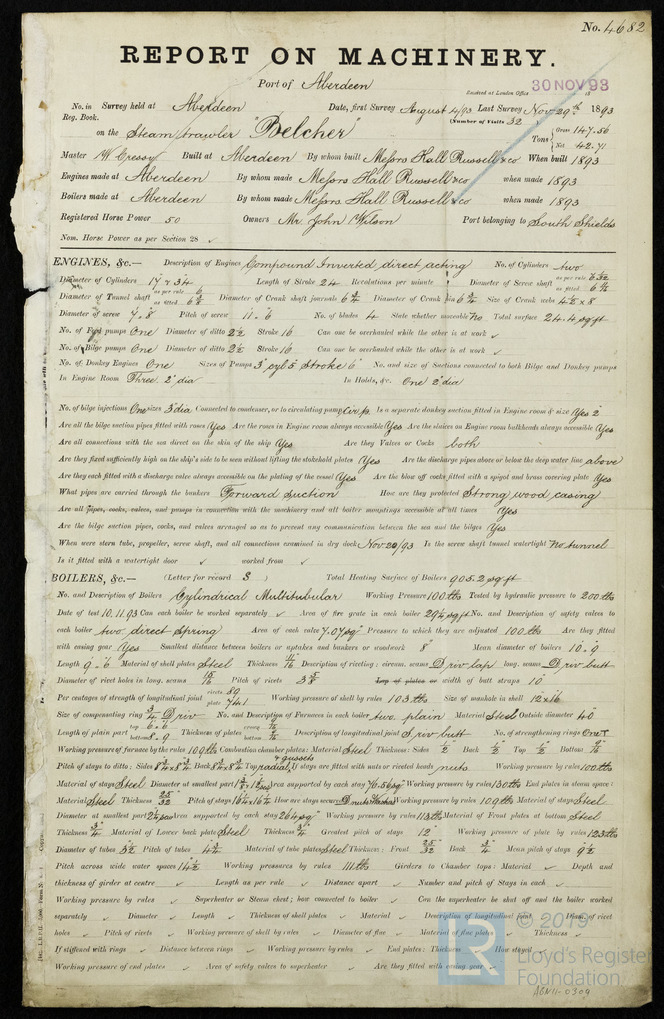 No. 4682
REPORT ON MACHINERY.
Port of Aberdeen
Received at London Office 30 NOV 93
No. in Survey held at Aberdeen Date, first Survey August 4/93 Last Survey Nov 29th 1893
Reg. Book. (Number of Visits 32
on the Steam trawler "Belcher" Tons { Gross 147.56
Net 42.71
Master W Cressy Built at Aberdeen By whom built Messrs Hall Russell & Co When built 1893
Engines made at Aberdeen By whom made Messrs Hall Russell & Co when made 1893
Boilers made at Aberdeen By whom made Messrs Hall Russell & Co when made 1893
Registered Horse Power 50 Owners Mr. John Wilson Port belonging to South Shields
Nom. Horse Power as per Section 28 ✓
ENGINES, &c.— Description of Engines Compound Inverted direct acting No. of Cylinders two
Diameter of Cylinders 17 & 34 Length of Stroke 24 Revolutions per minute Diameter of Screw shaft as per rule as fitted 6 1/2
Diameter of Tunnel shaft as per rule 6 as fitted Diameter of Crank shaft journals 6 3/4 Diameter of Crank pin 6 3/4 Size of Crank webs 4 1/2 x 8
Diameter of screw 7.8 Pitch of screw 11.6 No. of blades 4 State whether moveable No Total surface 24.4 sq ft
No. of Feed pumps One Diameter of ditto 2 1/2 Stroke 16 Can one be overhauled while the other is at work ✓
No. of Bilge pumps One Diameter of ditto 2 1/2 Stroke 16 Can one be overhauled while the other is at work ✓
No. of Donkey Engines One Sizes of Pumps 3" cyl 5 Stroke 6" No. and size of Suctions connected to both Bilge and Donkey pumps
In Engine Room Three 2" dia In Holds, &c. One 2" dia
No. of bilge injections One sizes 3" dia Connected to condenser, or to circulating pump Cir p. Is a separate donkey suction fitted in Engine room & size Yes 2"
Are all the bilge suction pipes fitted with roses Yes Are the roses in Engine room always accessible Yes Are the sluices on Engine room bulkheads always accessible Yes
Are all connections with the sea direct on the skin of the ship Yes Are they Valves or Cocks both
Are they fixed sufficiently high on the ship's side to be seen without lifting the stokehold plates Yes Are the discharge pipes above or below the deep water line above
Are they each fitted with a discharge valve always accessible on the plating of the vessel Yes Are the blow off cocks fitted with a spigot and brass covering plate Yes
What pipes are carried through the bunkers Forward suction How are they protected Strong wood casing
Are all pipes, cocks, valves, and pumps in connection with the machinery and all boiler mountings accessible at all times Yes
Are the bilge suction pipes, cocks, and valves arranged so as to prevent any communication between the sea and the bilges Yes
When were stern tube, propeller, screw shaft, and all connections examined in dry dock Nov 20/93 Is the screw shaft tunnel watertight No tunnel
Is it fitted with a watertight door ✓ worked from ✓
BOILERS, &c.— (Letter for record S ) Total Heating Surface of Boilers 905.2 sq ft
No. and Description of Boilers Cylindrical Multitubular Working Pressure 100 lbs Tested by hydraulic pressure to 200 lbs
Date of test 10.11.93 Can each boiler be worked separately ✓ Area of fire grate in each boiler 29 1/4 sq ft No. and Description of safety valves to
each boiler two direct spring Area of each valve 7.07 sq" Pressure to which they are adjusted 100 lbs Are they fitted
with easing gear Yes Smallest distance between boilers or uptakes and bunkers or woodwork 8" Mean diameter of boilers 10.9
Length 9.6 Material of shell plates Steel Thickness 11/16 Description of riveting: circum. seams D riv lap long. seams D riv butt
Diameter of rivet holes in long. seams 15/16 Pitch of rivets 3 5/8 Lap of plates or width of butt straps 10"
Per centages of strength of longitudinal joint rivets 89 plate 74.1 Working pressure of shell by rules 103 lbs Size of manhole in shell 12 x 16
Size of compensating ring 3/4 D riv No. and Description of Furnaces in each boiler two plain Material Steel Outside diameter 40
Length of plain part top 6.6 bottom 8.9 Thickness of plates crown bottom Description of longitudinal joint S riv butt No. of strengthening rings One T
Working pressure of furnace by the rules 109 lbs Combustion chamber plates: Material Steel Thickness: Sides 1/2 Back 1/2 Top 1/2 Bottom
Pitch of stays to ditto: Sides 8 3/4 x 8 3/4 Back 8 3/4 x 8 3/4 Top 4 gussets radial If stays are fitted with nuts or riveted heads nuts Working pressure by rules 100 lbs
Material of stays Steel Diameter at smallest part Area supported by each stay 76.56 sq" Working pressure by rules 130 lbs End plates in steam space:
Material Steel Thickness 25/32 Pitch of stays 16 1/4 x 16 1/4 How are stays secured D nuts & washers Working pressure by rules 109 lbs Material of stays Steel
Diameter at smallest part Area supported by each stay 264 sq" Working pressure by rules 113 lbs Material of Front plates at bottom Steel
Thickness 3/4 Material of Lower back plate Steel Thickness 3/4 Greatest pitch of stays 12 Working pressure of plate by rules 123 lbs
Diameter of tubes 3 1/2 Pitch of tubes 4 3/4 Material of tube plates Steel Thickness: Front 25/32 Back 3/4 Mean pitch of stays 9 1/2
Pitch across wide water spaces 14 1/2 Working pressures by rules 111 lbs Girders to Chamber tops: Material ✓ Depth and
thickness of girder at centre ✓ Length as per rule ✓ Distance apart ✓ Number and pitch of Stays in each ✓
Working pressure by rules ✓ Superheater or Steam chest; how connected to boiler ✓ Can the superheater be shut off and the boiler worked
separately ✓ Diameter ✓ Length ✓ Thickness of shell plates ✓ Material ✓ Description of longitudinal joint ✓ Diam. of rivet
holes ✓ Pitch of rivets ✓ Working pressure of shell by rules ✓ Diameter of flue ✓ Material of flue plates ✓ Thickness ✓
If stiffened with rings ✓ Distance between rings ✓ Working pressure by rules ✓ End plates: Thickness ✓ How stayed
Working pressure of end plates ✓ Area of safety valves to superheater ✓ Are they fitted with easing gear ✓
© 2019
Lloyd's Register
Foundation
ABN11-0309